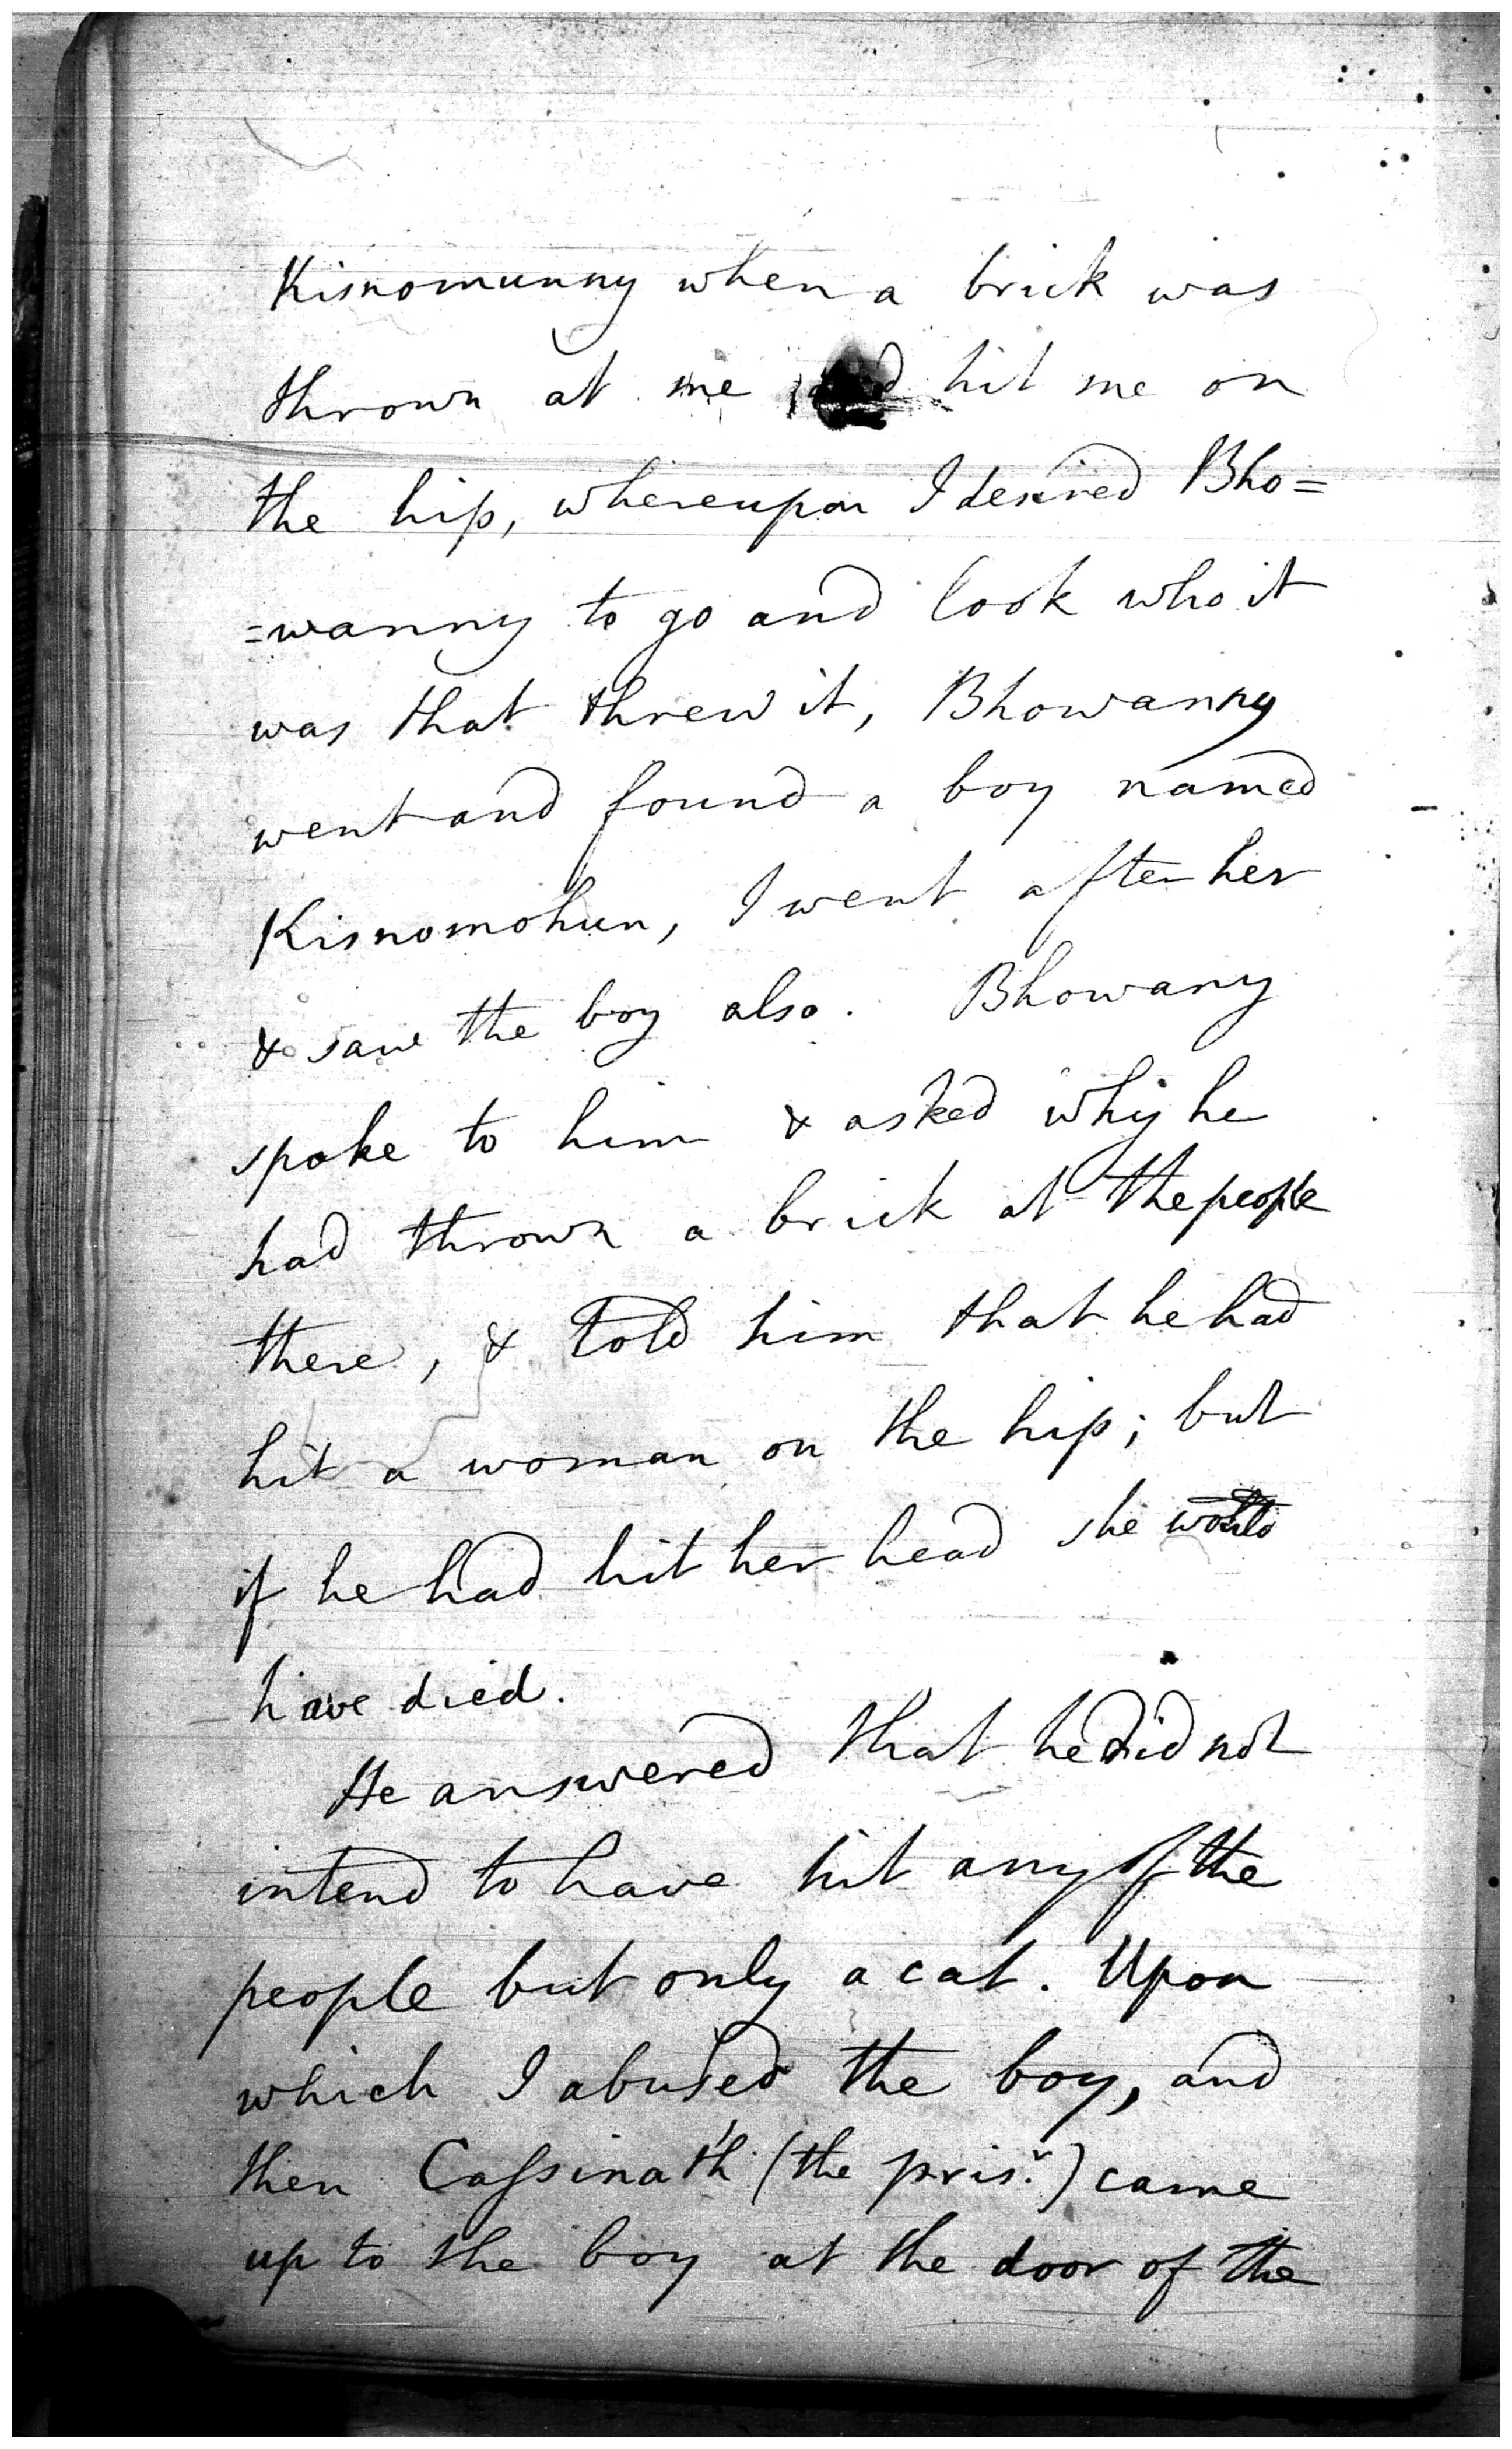 Kisnomunny when a brick was
thrown at me and hit me on
the hip, whereupon I desired Bho=
=wanny to go and look who it
was that threw it, Bhowanny
went and found a boy named
Kisnomohun, I went after her
& saw the boy also. Bhowany
spoke to him & asked why he
had thrown a brick at the people
there, & told him that he had
hit a woman on the hip; but
if he had hit her head she would
have died.
He answered that he did not
intend to have hit any of the
people but only a cat. Upon
which I abused the boy, and
then Caſsinath (the prisr.) came
up to the boy at the door of the